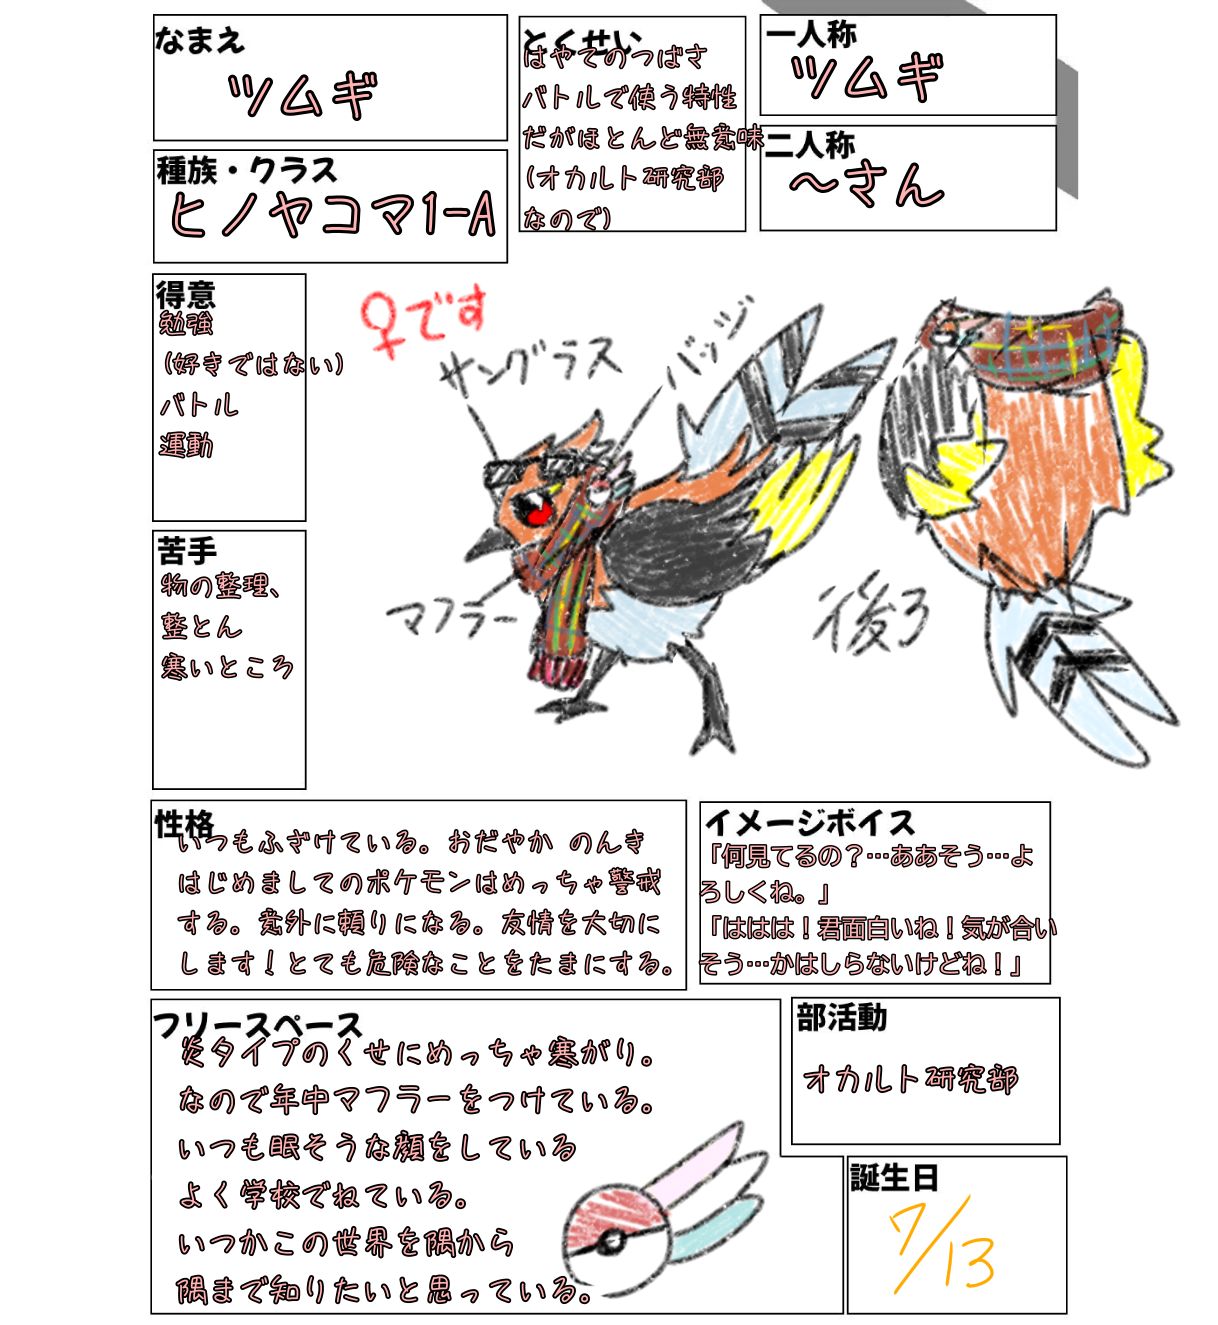 なまえ
ツムギ
種族・クラス
ヒノヤコマ1-A
とくせい
はやてのつばさ
バトルで使う特性
だがほとんど無意味
(オカルト研究部
なので)
一人称
ツムギ
二人称
～さん
得意
勉強
(好きではない)
バトル
運動
苦手
物の整理、
整とん
寒いところ
♀です
サングラス
バッジ
マフラー
後ろ
性格
いつもふざけている。おだやか のんき
はじめましてのポケモンはめっちゃ警戒
する。意外に頼りになる。友情を大切に
します!とても危険なことをたまにする。
イメージボイス
「何見てるの？…ああそう…よ
ろしくね。」
「ははは！君面白いね！気が合い
そう…かはしらないけどね！」
フリースペース
炎タイプのくせにめっちゃ寒がり。
なので年中マフラーをつけている。
いつも眠そうな顔をしている
よく学校でねている。
いつかこの世界を隅から
隅まで知りたいと思っている。
部活動
オカルト研究部
誕生日
7/13